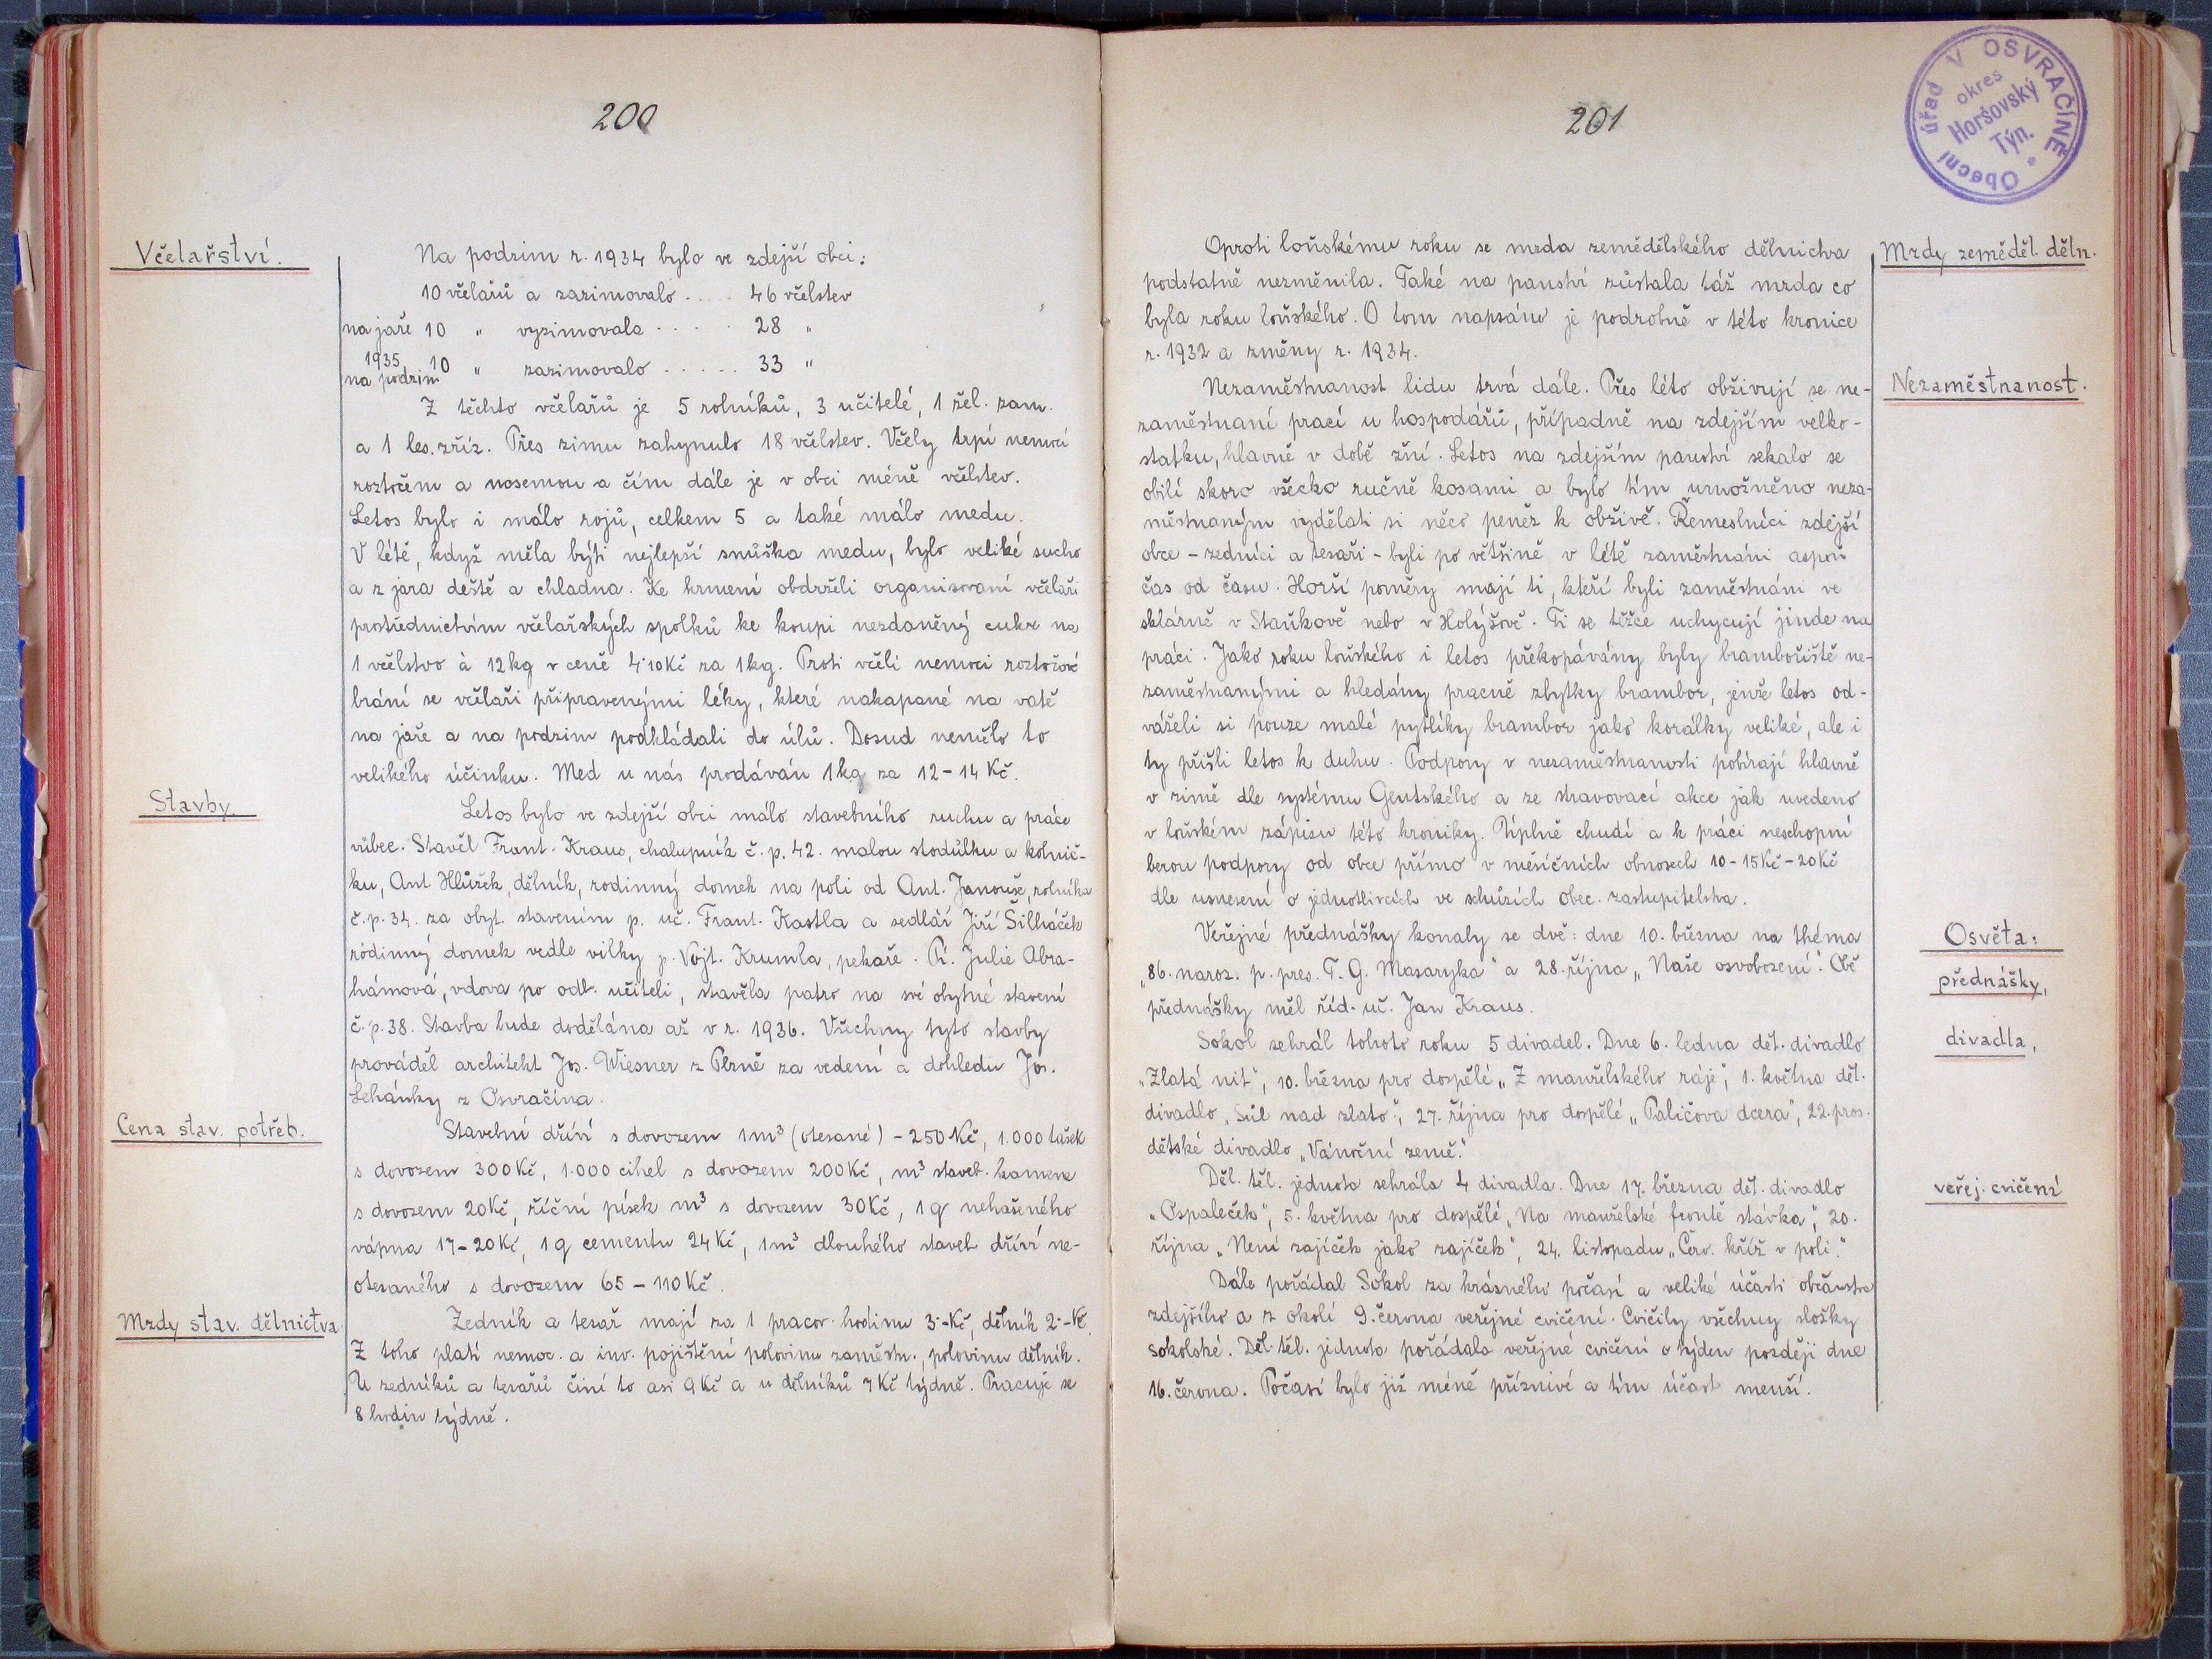 200
Včelařství.
Na podzim r. 1934 bylo ve zdejší obci:
10 včelařů a zazimovalo ..... 46 včelstev
na jaře 10 „ vyzimovala ..... 28 „
1935
na podzim 10 „ zazimovalo ..... 33 „
Z těchto včelařů je 5 rolníků, 3 učitelé, 1 žel. zam.
a 1 les. zříz. Přes zimu zahynulo 18 včelstev. Včely trpí nemocí
roztočem a nosemou a čím dále je v obci méně včelstev.
Letos bylo i málo rojů, celkem 5 a také málo medu.
V létě, když měla býti nejlepší snůška medu, bylo veliké sucho
a z jara deště a chladna. Ke krmení obdrželi organisovaní včelaři
prostřednictvím včelařských spolků ke koupi nezdaněný cukr na
1 včelstvo à 12 kg v ceně 4·10 Kč za 1 kg. Proti včelí nemoci roztočové
brání se včelaři připravenými léky, které nakapané na vatě
na jaře a na podzim podkládali do úlů. Dosud nemělo to
velikého účinku. Med u nás prodáván 1 kg za 12 – 14 Kč.
Stavby.
Letos bylo ve zdejší obci málo stavebního ruchu a práce
vůbec. Stavěl Frant. Kraus, chalupník č. p. 42. malou stodůlku a kolnič-
ku, Ant. Hlůžek, dělník, rodinný domek na poli od Ant. Janouše, rolníka
č. p. 34. za obyt. stavením p. uč. Frant. Kastla a sedlář Jiří Šilháček
rodinný domek vedle vilky p. Vojt. Krumla, pekaře. Pí. Julie Abra-
hámová, vdova po odb. učiteli, stavěla patro na své obytné stavení
č. p. 38. Stavba bude dodělána až v r. 1936. Všechny tyto stavby
prováděl architekt Jos. Wiesner z Plzně za vedení a dohledu Jos.
Lehánky z Osvračína.
Cena stav. potřeb.
Stavební dříví s dovozem 1 m³ (otesané) – 250 Kč, 1.000 tašek
s dovozem 300 Kč, 1·000 cihel s dovozem 200 Kč, m³ staveb. kamene
s dovozem 20 Kč, říční písek m³ s dovozem 30 Kč, 1 q nehašeného
vápna 17 – 20 Kč, 1 q cementu 24 Kč, 1 m³ dlouhého staveb. dříví ne-
otesaného s dovozem 65 – 110 Kč.
Mzdy stav. dělnictva.
Zedník a tesař mají za 1 pracov. hodinu 3·– Kč, dělník 2·– Kč.
Z toho platí nemoc. a inv. pojištění polovinu zaměstn., polovinu dělník.
U zedníků a tesařů činí to asi 9 Kč a u dělníků 7 Kč týdně. Pracuje se
8 hodin týdně.
201
Obecní úřad V OSVRAČÍNĚ *
okres
Horšovský
Týn.
Oproti loňskému roku se mzda zemědělského dělnictva
Mzdy zeměděl. děln.
podstatně nezměnila. Také na panství zůstala táž mzda co
byla roku loňského. O tom napsáno je podrobně v této kronice
r. 1932 a změny r. 1934.
Nezaměstnanost lidu trvá dále. Přes léto obživují se ne-
Nezaměstnanost.
zaměstnaní prací u hospodářů, případně na zdejším velko-
statku, hlavně v době žní. Letos na zdejším panství sekalo se
obilí skoro všecko ručně kosami a bylo tím umožněno neza-
městnaným vydělati si něco peněz k obživě. Řemeslníci zdejší
obce – zedníci a tesaři – byli po většině v létě zaměstnáni aspoň
čas od času. Horší poměry mají ti, kteří byli zaměstnáni ve
sklárně v Staňkově nebo v Holýšově. Ti se těžce uchycují jinde na
práci. Jako roku loňského i letos překopávány byly bramboriště ne-
zaměstnanými a hledány pracně zbytky brambor, jenže letos od-
váželi si pouze malé pytlíky brambor jako korálky veliké, ale i
ty přišli letos k duhu. Podpory v nezaměstnanosti pobírají hlavně
v zimě dle systému Gentského a ze stravovací akce jak uvedeno
v loňském zápisu této kroniky. Úplně chudí a k práci neschopní
berou podpory od obce přímo v měsíčních obnosech 10 – 15 Kč – 20 Kč
dle usnesení o jednotlivcích ve schůzích obec. zastupitelstva.
Osvěta:
Veřejné přednášky konaly se dvě: dne 10. března na théma
„86. naroz. p. pres. T. G. Masaryka" a 28. října „Naše osvobození". Obě
přednášky,
přednášky měl říd. uč. Jan Kraus.
Sokol sehrál tohoto roku 5 divadel. Dne 6. ledna dět. divadlo
divadla,
„Zlatá nit", 10. března pro dospělé „Z manželského ráje", 1. května dět.
divadlo „Sůl nad zlato", 27. října pro dospělé „Paličova dcera", 22. pros.
dětské divadlo „Vánoční země."
Děl. těl. jednota sehrála 4 divadla. Dne 17. března dět. divadlo
veřej. cvičení
„Ospaleček", 5. května pro dospělé „Na manželské frontě stávka", 20.
října „Není zajíček jako zajíček", 24. listopadu „Červ. kříž v poli."
Dále pořádal Sokol za krásného počasí a veliké účasti občanstva
zdejšího a z okolí 9. června veřejné cvičení. Cvičily všechny složky
sokolské. Děl. těl. jednota pořádala veřejné cvičení o týden později dne
16. června. Počasí bylo již méně příznivé a tím účast menší.